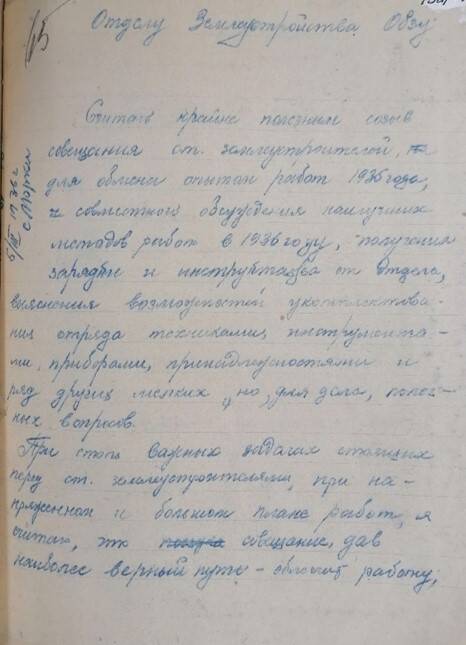 Отделу Землеустройства Обзу
Считаю крайне полезным созыв
совещания ст. землеустроителей,
для обмена опытом работ 1936 года,
и совместного обсуждения наилучших
методов работ в 1936 году, получения
зарядки и инструктажа от отдела,
выяснения возможностей укомплектова-
ния отряда техниками, инструмента-
ми, приборами, принадлежностями и
ряд других мелких, но для дела,
ных вопросов.
При столь важных задачах стоящих
перед ст. землеустроителями, при на-
пряженном и большом плане работ, я
считаю, что совещание, дав
наиболее верный путь - облегчит работу,